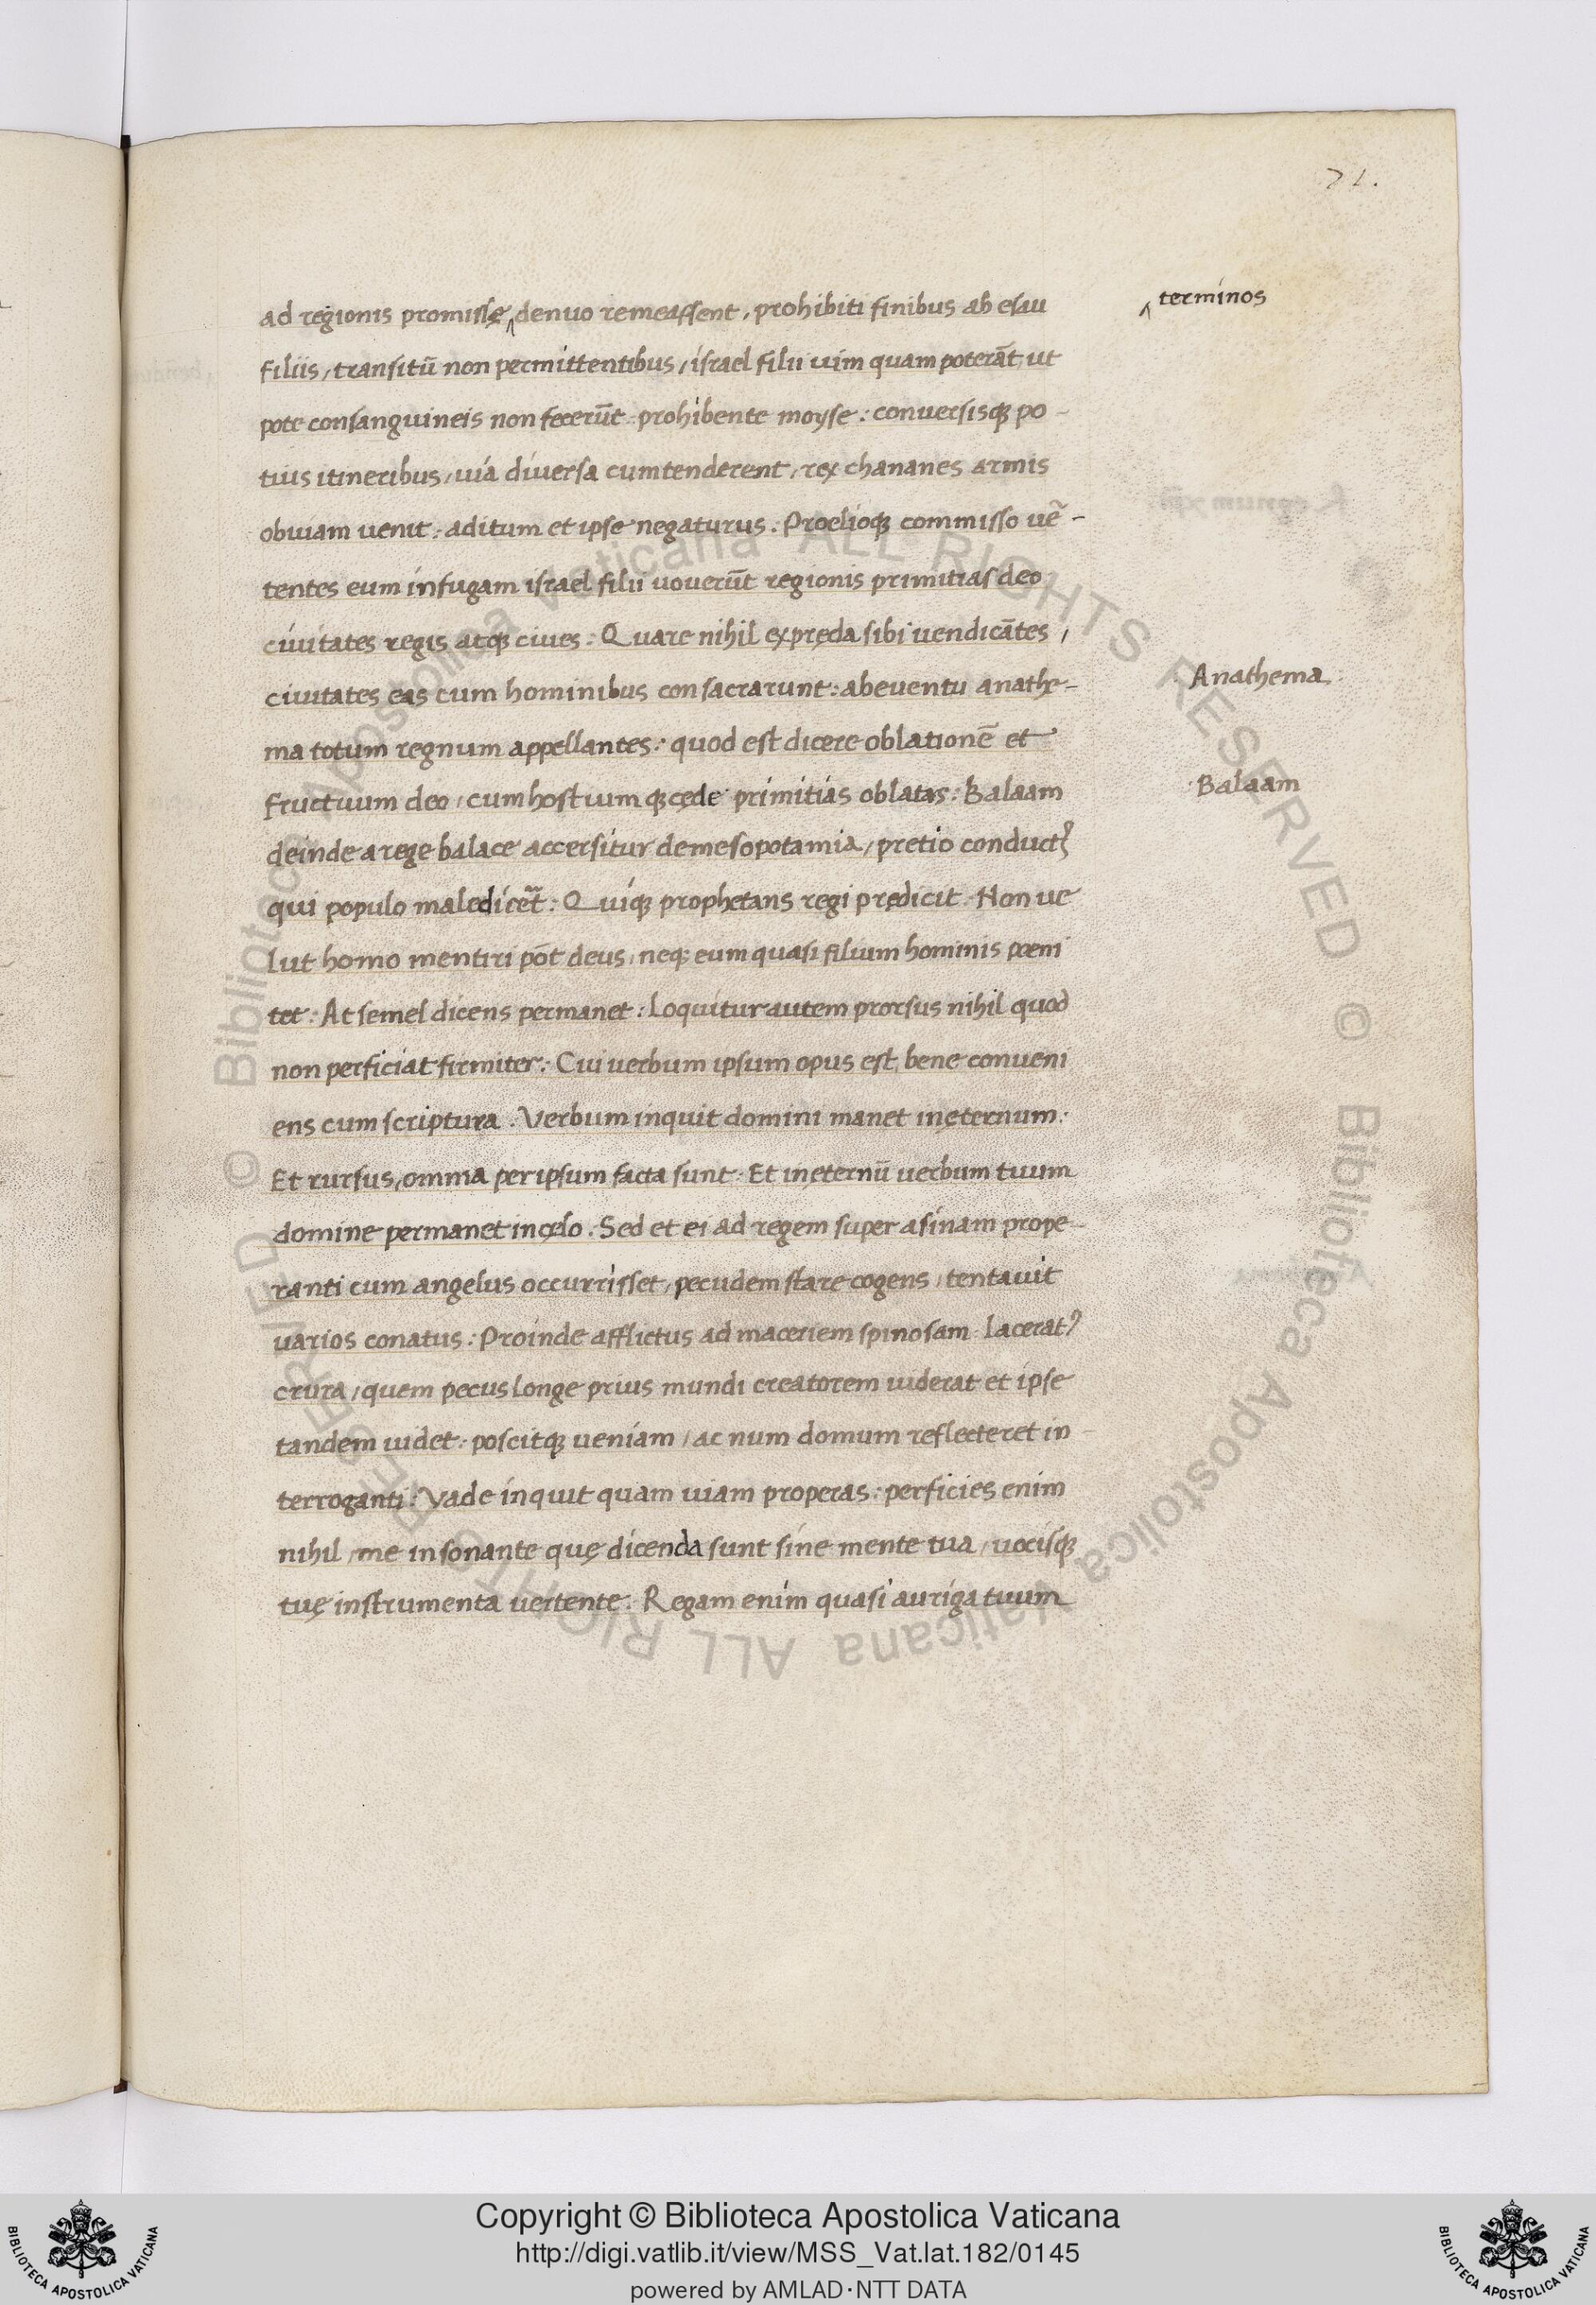 71.
ad regionis promissę ‸ denuo remeassent, prohibiti finibus ab esau
‸ terminos
filiis, transitū non permittentibus, israel filii uim quam poterāt, ut
pote consanguineis non fecerūt prohibente moyse: conuersisq; po-
tius itineribus, uia diuersa cum tenderent, rex chananes armis
obuiam uenit: aditum et ipse negaturus. Proelioq; commisso uē-
tentes eum in fugam israel filii uouerūt regionis primitias deo
ciuitates regis atq; ciues: Quare nihil ex pręda sibi uendicātes,
ciuitates eas cum hominibus consacrarunt: ab euentu anathe-
Anathema
ma totum regnum appellantes: quod est dicere oblationē et
fructuum deo, cum hostiumq; cęde primitias oblatas: Balaam
Balaam
deinde a rege balace accersitur de mesopotamia, pretio conductꝰ
qui populo maledicet: Quiq; prophetans regi prędicit. Non ue
lut homo mentiri pōt deus, neq; eum quasi filium hominis poeni
tet: At semel dicens permanet: Loquitur autem prorsus nihil quod
non perficiat firmiter: Cui uerbum ipsum opus est, bene conueni
ens cum scriptura. Verbum inquit domini manet in ęternum:
Et rursus, omnia per ipsum facta sunt. Et in ęternū uerbum tuum
domine permanet in cęlo. Sed et ei ad regem super asinam prope-
ranti cum angelus occurrisset, pecudem stare cogens, tentauit
uarios conatus: Proinde afflictus ad maceriem spinosam laceratꝰ
crura, quem pecus longe prius mundi creatorem uiderat et ipse
tandem uidet: poscitq; ueniam, ac num domum reflecteret in-
terroganti: Vade inquit quam uiam properas: perficies enim
nihil, me insonante quę dicenda sunt sine mente tua, uocisq;
tuę instrumenta uertente: Regam enim quasi auriga tuum
© Biblioteca Apostolica Vaticana ALL RIGHTS RESERVED © Biblioteca Apostolica Vaticana ALL RIGHTS RESERVED
Copyright © Biblioteca Apostolica Vaticana
http://digi.vatlib.it/view/MSS_Vat.lat.182/0145
powered by AMLAD·NTT DATA
BIBLIOTECA APOSTOLICA VATICANA
BIBLIOTECA APOSTOLICA VATICANA